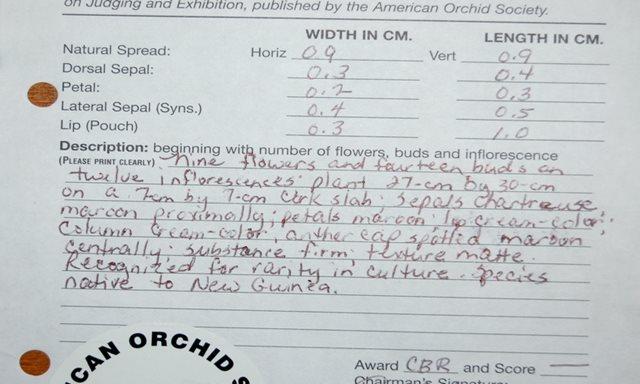 on Judging and Exhibition, published by the American Orchid Society.
WIDTH IN CM. LENGTH IN CM.
Natural Spread: Horiz 0.9 Vert 0.9
Dorsal Sepal: 0.3 0.4
Petal: 0.2 0.3
Lateral Sepal (Syns.) 0.4 0.5
Lip (Pouch) 0.3 1.0
Description: beginning with number of flowers, buds and inflorescence
(PLEASE PRINT CLEARLY) Nine flowers and fourteen buds on
twelve inflorescences; plant 27-cm by 30-cm
on a 7-cm by 7-cm cork slab; sepals chartreuse
maroon proximally; petals maroon; lip cream-color;
column cream-color, anther cap spotted maroon
centrally; substance firm; texture matte.
Recognized for rarity in culture. Species
native to New Guinea.
CAN ORCHID S
Award CBR and Score
Chairman's Signature: